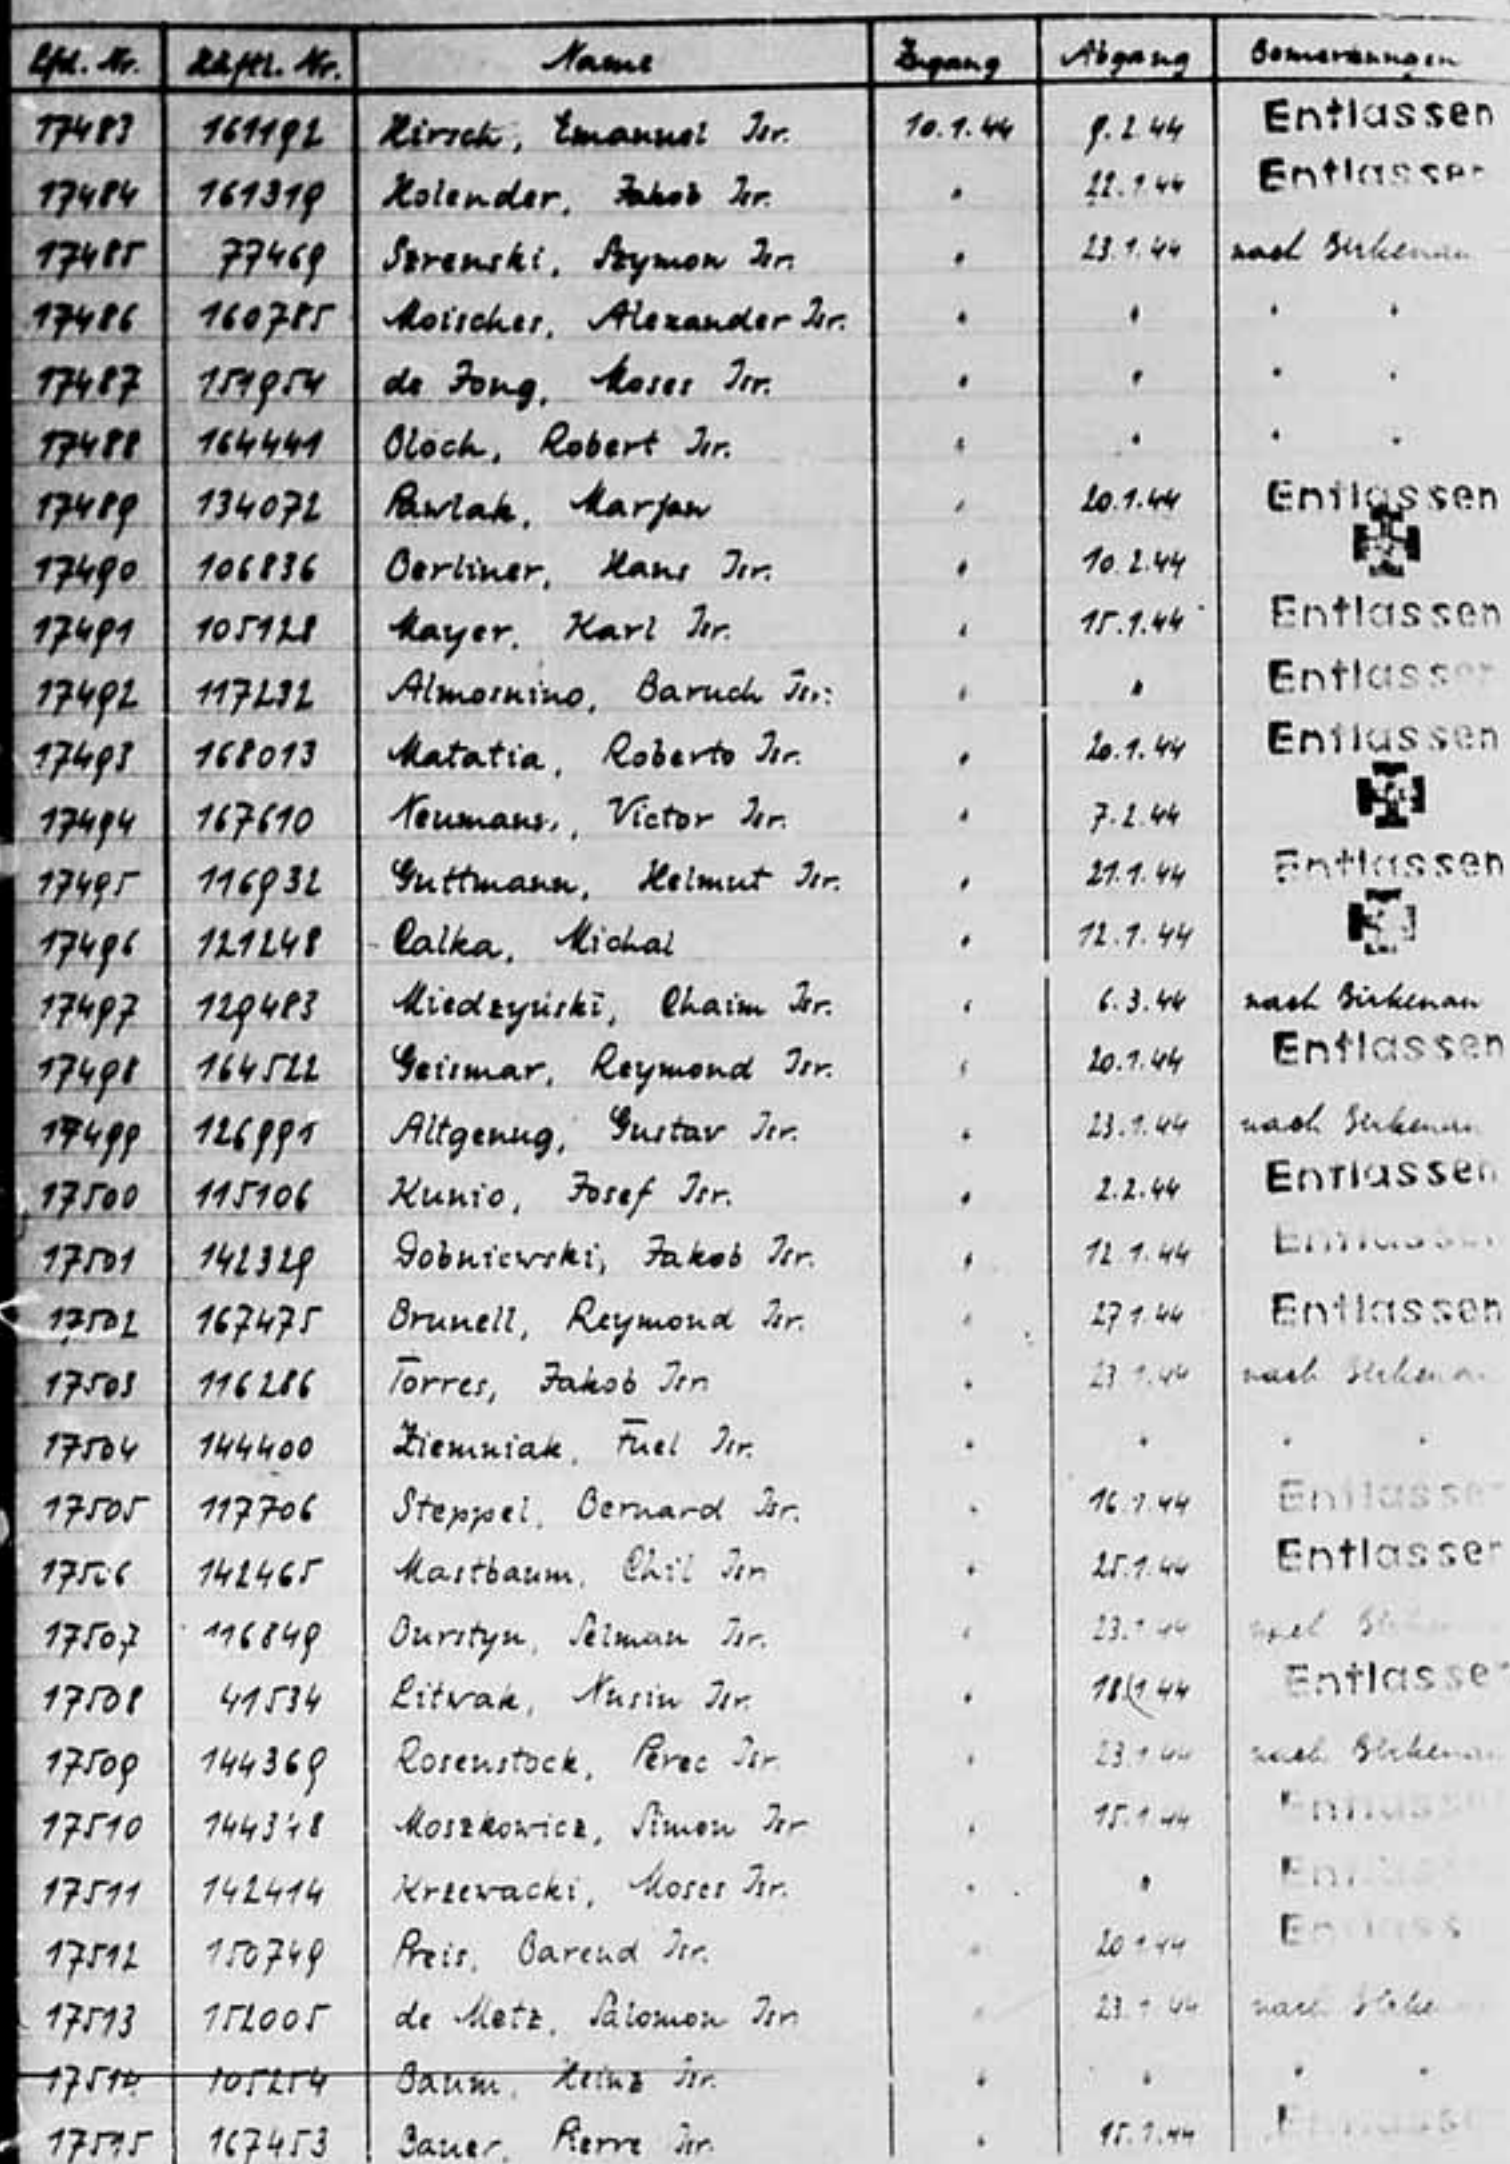 Lfd. Nr. Häftl. Nr. Name Zugang Abgang Bemerkungen
17483 161192 Hirsch, Emanuel Isr. 10.1.44 9.2.44 Entlassen
17484 161319 Holender, Jakob Isr. " 22.1.44 Entlassen
17485 77469 Szrenski, Szymon Isr. " 23.1.44 nach Birkenau
17486 160785 Moisches, Alexander Isr. " " " "
17487 151954 de Jong, Moses Isr. " " " "
17488 164441 Bloch, Robert Isr. " " " "
17489 134072 Pawlak, Marjan " 20.1.44 Entlassen
17490 106836 Berliner, Hans Isr. " 10.2.44
17491 105128 Mayer, Karl Isr. " 15.1.44 Entlassen
17492 117232 Almosnino, Baruch Isr. " " Entlassen
17493 168013 Matatia, Roberto Isr. " 20.1.44 Entlassen
17494 167610 Neumann, Victor Isr. " 7.2.44
17495 116932 Guttmann, Helmut Isr. " 21.1.44 Entlassen
17496 121248 Calka, Michal " 12.1.44
17497 129483 Miedzyński, Chaim Isr. " 6.3.44 nach Birkenau
17498 164522 Geismar, Reymond Isr. " 20.1.44 Entlassen
17499 126991 Altgenug, Gustav Isr. " 23.1.44 nach Birkenau
17500 115106 Kunio, Josef Isr. " 2.2.44 Entlassen
17501 142329 Dobniewski, Jakob Isr. " 12.1.44 Entlassen
17502 167475 Brunell, Reymond Isr. " 27.1.44 Entlassen
17503 116286 Torres, Jakob Isr. " 23.1.44 nach Birkenau
17504 144400 Ziemniak, Fuel Isr. " " " "
17505 117706 Steppel, Bernard Isr. " 16.1.44 Entlassen
17506 142465 Mastbaum, Chil Isr. " 25.1.44 Entlassen
17507 116849 Burstyn, Selman Isr. " 23.1.44 nach Birkenau
17508 41534 Litwak, Nusin Isr. " 18.1.44 Entlassen
17509 144369 Rosenstock, Perec Isr. " 23.1.44 nach Birkenau
17510 144348 Moszkowicz, Simon Isr. " 15.1.44 Entlassen
17511 142414 Krzewacki, Moses Isr. " " Entlassen
17512 150749 Preis, Barend Isr. " 20.1.44 Entlassen
17513 152005 de Metz, Salomon Isr. " 23.1.44 nach Birkenau
17514 105254 Baum, Heinz Isr. " " " "
17515 167453 Bauer, Pierre Isr. " 15.1.44 Entlassen